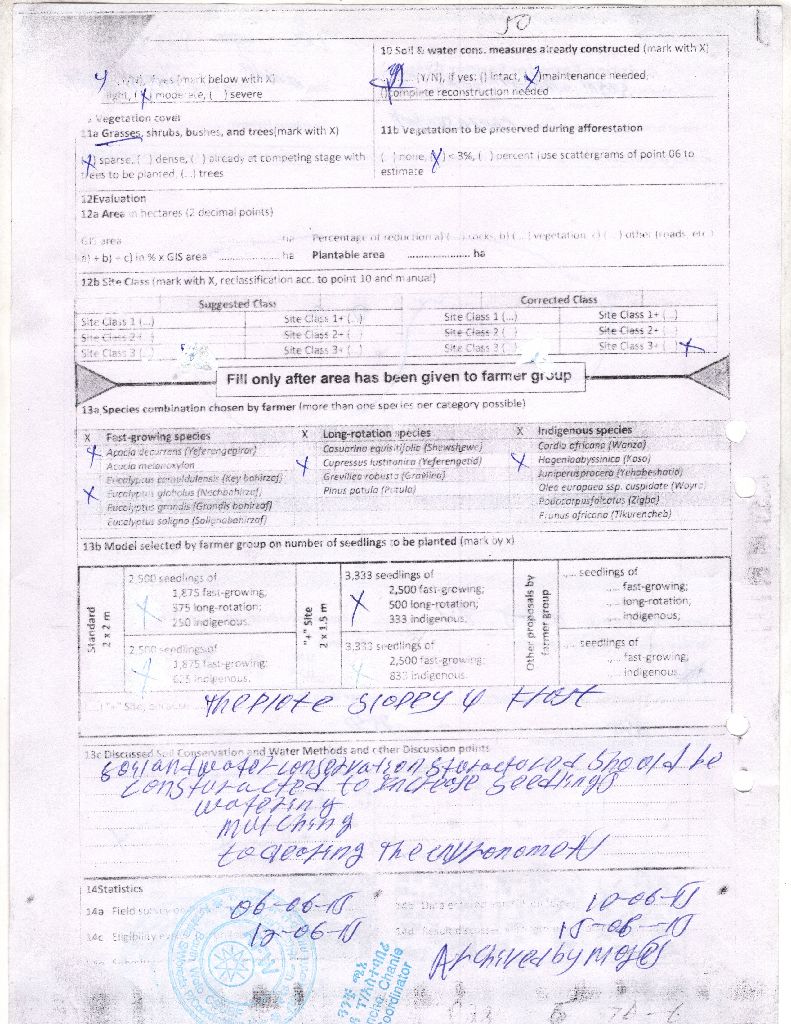 50
10 Soil & water cons. measures already constructed (mark with X)
(Y/N), if yes (mark below with X)
(Y/N), if yes: () intact, (X) maintenance needed,
light, (X) moderate, (...) severe
complete reconstruction needed
Vegetation cover
11a Grasses, shrubs, bushes, and trees(mark with X)
11b Vegetation to be preserved during afforestation
(X) sparse, (...) dense, (...) already at competing stage with
trees to be planted, (...) trees
(...) none, (X) < 3%, (...) percent (use scattergrams of point 06 to
estimate
12Evaluation
12a Area in hectares (2 decimal points)
GIS area ha Percentage of reduction a) (...) rocks, b) (...) vegetation, c) (...) other (roads, etc.)
a) + b) + c) in % x GIS area .................... ha Plantable area .................... ha
12b Site Class (mark with X, reclassification acc. to point 10 and manual)
Suggested Class Corrected Class
Site Class 1 (...) Site Class 1+ (...) Site Class 1 (...) Site Class 1+ (...)
Site Class 2 (...) Site Class 2+ (...) Site Class 2 (...) Site Class 2+ (...)
Site Class 3 (...) Site Class 3+ (...) Site Class 3 (...) Site Class 3+ (X)
Fill only after area has been given to farmer group
13a Species combination chosen by farmer (more than one species per category possible)
X Fast-growing species X Long-rotation species X Indigenous species
X Acacia decurrens (Yeferengegirar) Casuarina equisitifolia (Shewshewe) Cordia africana (Wanza)
Acacia melanoxylon X Cupressus lustitanica (Yeferengetid) X Hageniaabyssinica (Koso)
Eucalyptus camaldulensis (Key bahirzaf) Grevillea robusta (Gravilea) Juniperusprocera (Yehabeshatid)
X Eucalyptus globolus (Nechbahirzaf) Pinus patula (Patula) Olea europaea ssp. cuspidate (Woyra)
Eucalyptus grandis (Grandis bahirzaf) Podocarpusfalcatus (Zigba)
Eucalyptus saligna (Salignabahirzaf) Prunus africana (Tikurencheb)
13b Model selected by farmer group on number of seedlings to be planted (mark by x)
Standard
2 x 2 m
2,500 seedlings of
1,875 fast-growing,
X 375 long-rotation;
250 indigenous.
2,500 seedlings of
X 1,875 fast-growing;
625 indigenous.
"+" Site
2 x 1.5 m
3,333 seedlings of
2,500 fast-growing;
X 500 long-rotation;
333 indigenous.
3,333 seedlings of
2,500 fast-growing;
833 indigenous.
Other proposals by
farmer group
..... seedlings of
..... fast-growing;
..... long-rotation;
..... indigenous;
..... seedlings of
..... fast-growing,
..... indigenous
"+" Site, because the plote slopey & frost
13c Discussed Soil Conservation and Water Methods and other Discussion points
soil and water conservation sturactured should be
consturacted to increase seedlings
watering
mulching
14Statistics
14a Field survey on 06-06-15 10-06-15
14c Eligibility 12-06-15 15-06-15
Archived by moges
Chanie
Coordinator